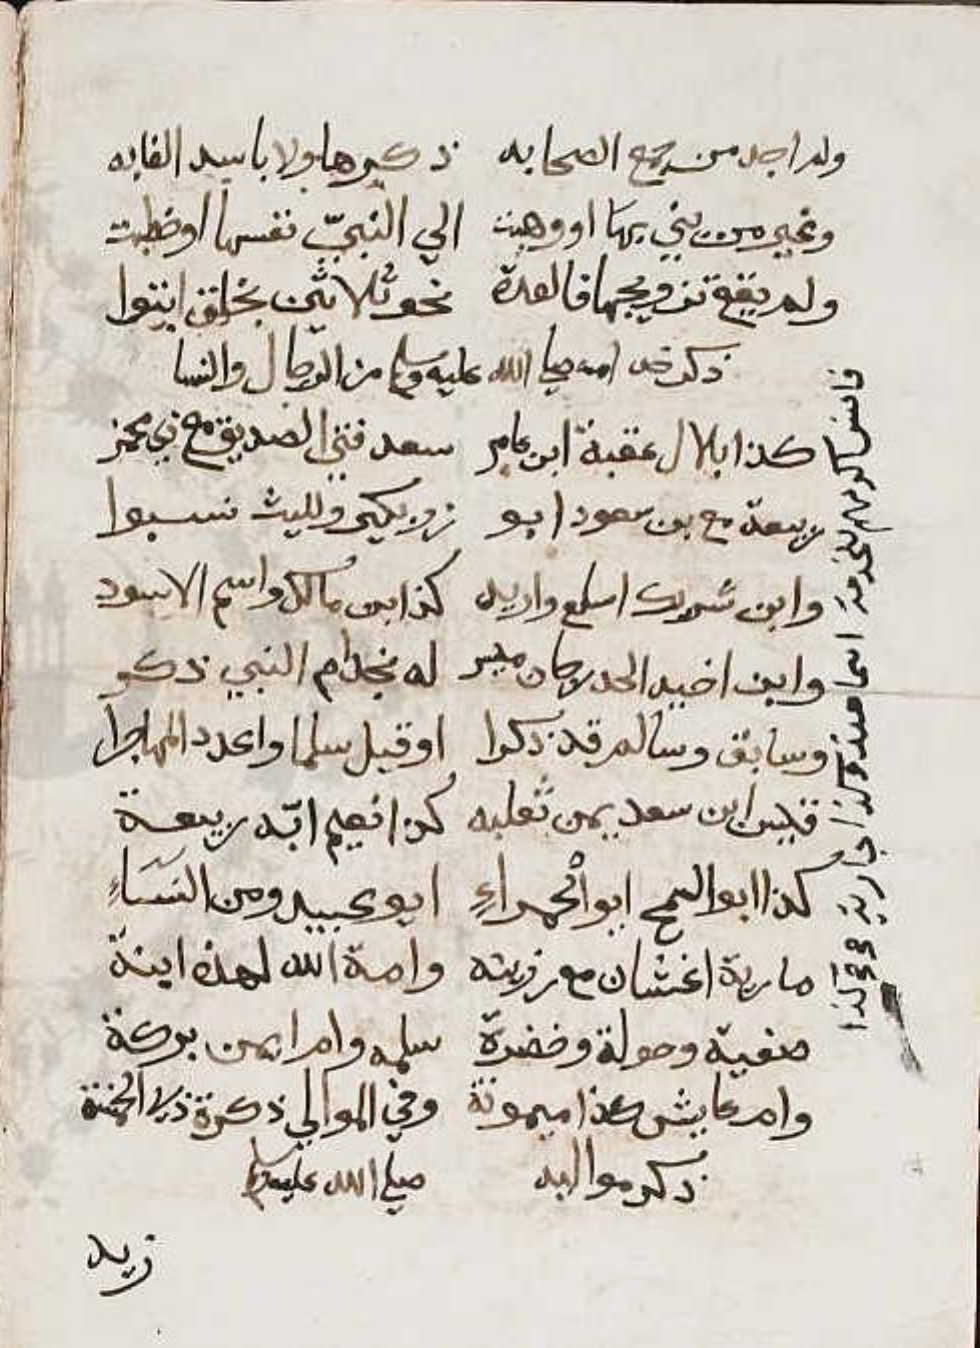 ولم اجد من جمع الصحابه ذكرها ولا باسد الغابه
وغير من بني بها او وهبت الي النبيّ نفسها او خطبت
ولم يقع تزويجها فالعدة نحو ثلاثين بخلف اثبتوا
ذكر خدامه صلي الله عليه وسلم من الرجال والنسا
كذا بلال عقبة ابن عامر سعد فتي الصديق مع ذي مخمر
ربيعة مع بن مسعود ابو زر بكير ولليث نسبوا
وابن شريك اسلع واربد كذا ابن مالك واسم الاسود
وابن اخيه الحدرجان له بخدام النبي ذكر
وسابق وسالم قد ذكرا او قيل سلما واعدد المهاجرا
قيس ابن سعد يمن ثعلبه كذا نعيم ابه ربيعة
كذا ابوا السمح ابوا الحمراءِ ابو عبيد ومن النسَاءِ
مارية اغشان مع رزينه وامة الله لهذه ابنة
صفية وخولة وخضرة سلمه وام ايمن بركة
وام عايش كذا ميمونة وفي الموالي ذكرة ذي
ذكر مواليه صلي الله عليه وسلم
زيد
هند وكذا جارية